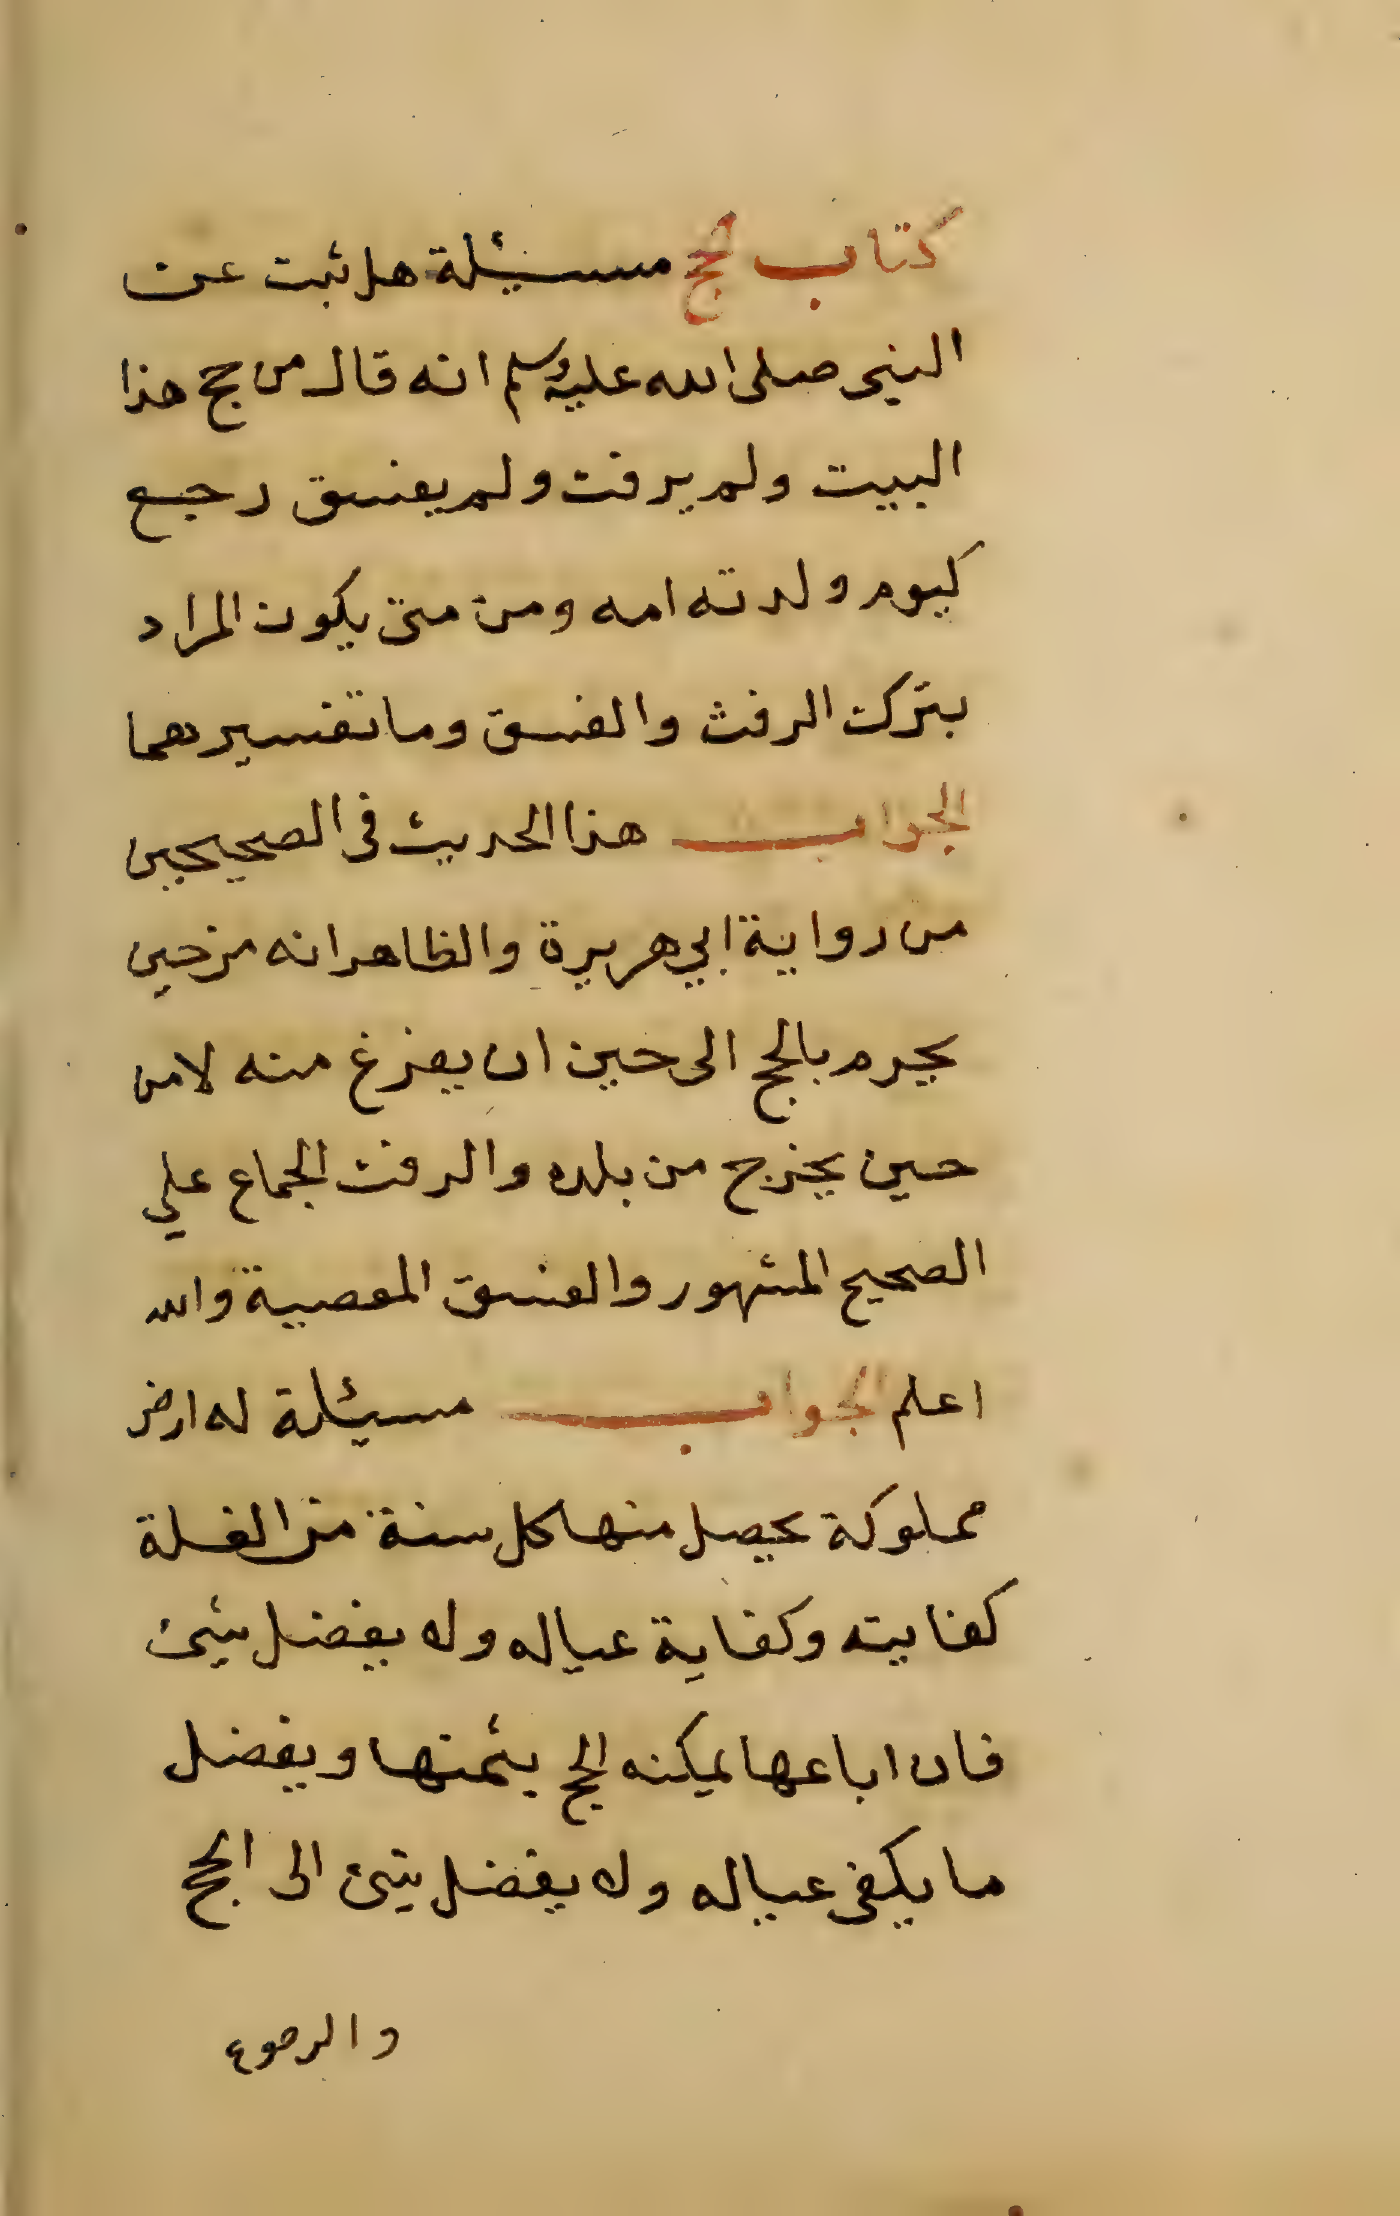 كتاب الحج مسئلة هل ثبت عن
النبي صلى الله عليه وسلم انه قال من حج هذا
البيت ولم يرفث ولم يفسق رجع
كيوم ولدته امه ومن متى يكون المراد
بترك الرفث والفسق وما تفسيرهما
الجواب هذا الحديث في الصحيحين
من رواية ابي هريرة والظاهر انه من حين
يحرم بالحج الى حين ان يفرغ منه لا من
حين يخرج من بلده والرفث الجماع علي
الصحيح المشهور والفسق المعصية والله
اعلم الجواب مسيئلة له ارض
مملوكة يحصل منها كل سنة من الغلة
كفايته وكفاية عياله وله يفضل شيئ
فان اباعها يمكنه الحج بثمنها ويفضل
ما يكفي عياله وله يفضل شيئ الى الحج
والرجوع